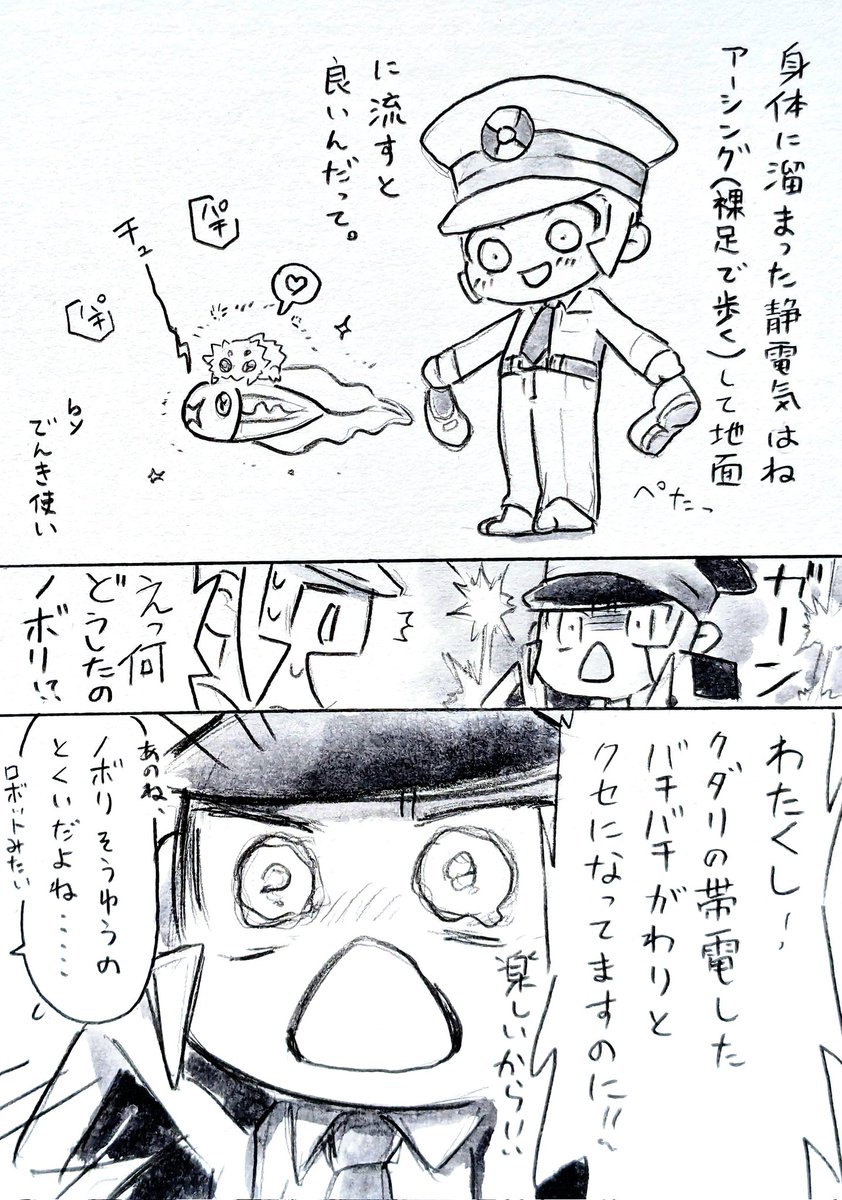 身体に溜まった静電気はね
アーシング(裸足で歩く)して地面
に流すと
良いんだって。
パチ
チュ
パチ
by
でんき使い
ペたっ
ガーン
えっ何
どうしたの
ノボリ!?
わたくし!
クダリの帯電した
バチバチがわりと
クセになってますのに!!
楽しいから!!
あのね、
ノボリそうゆうの
とくいだよね……
ロボットみたい